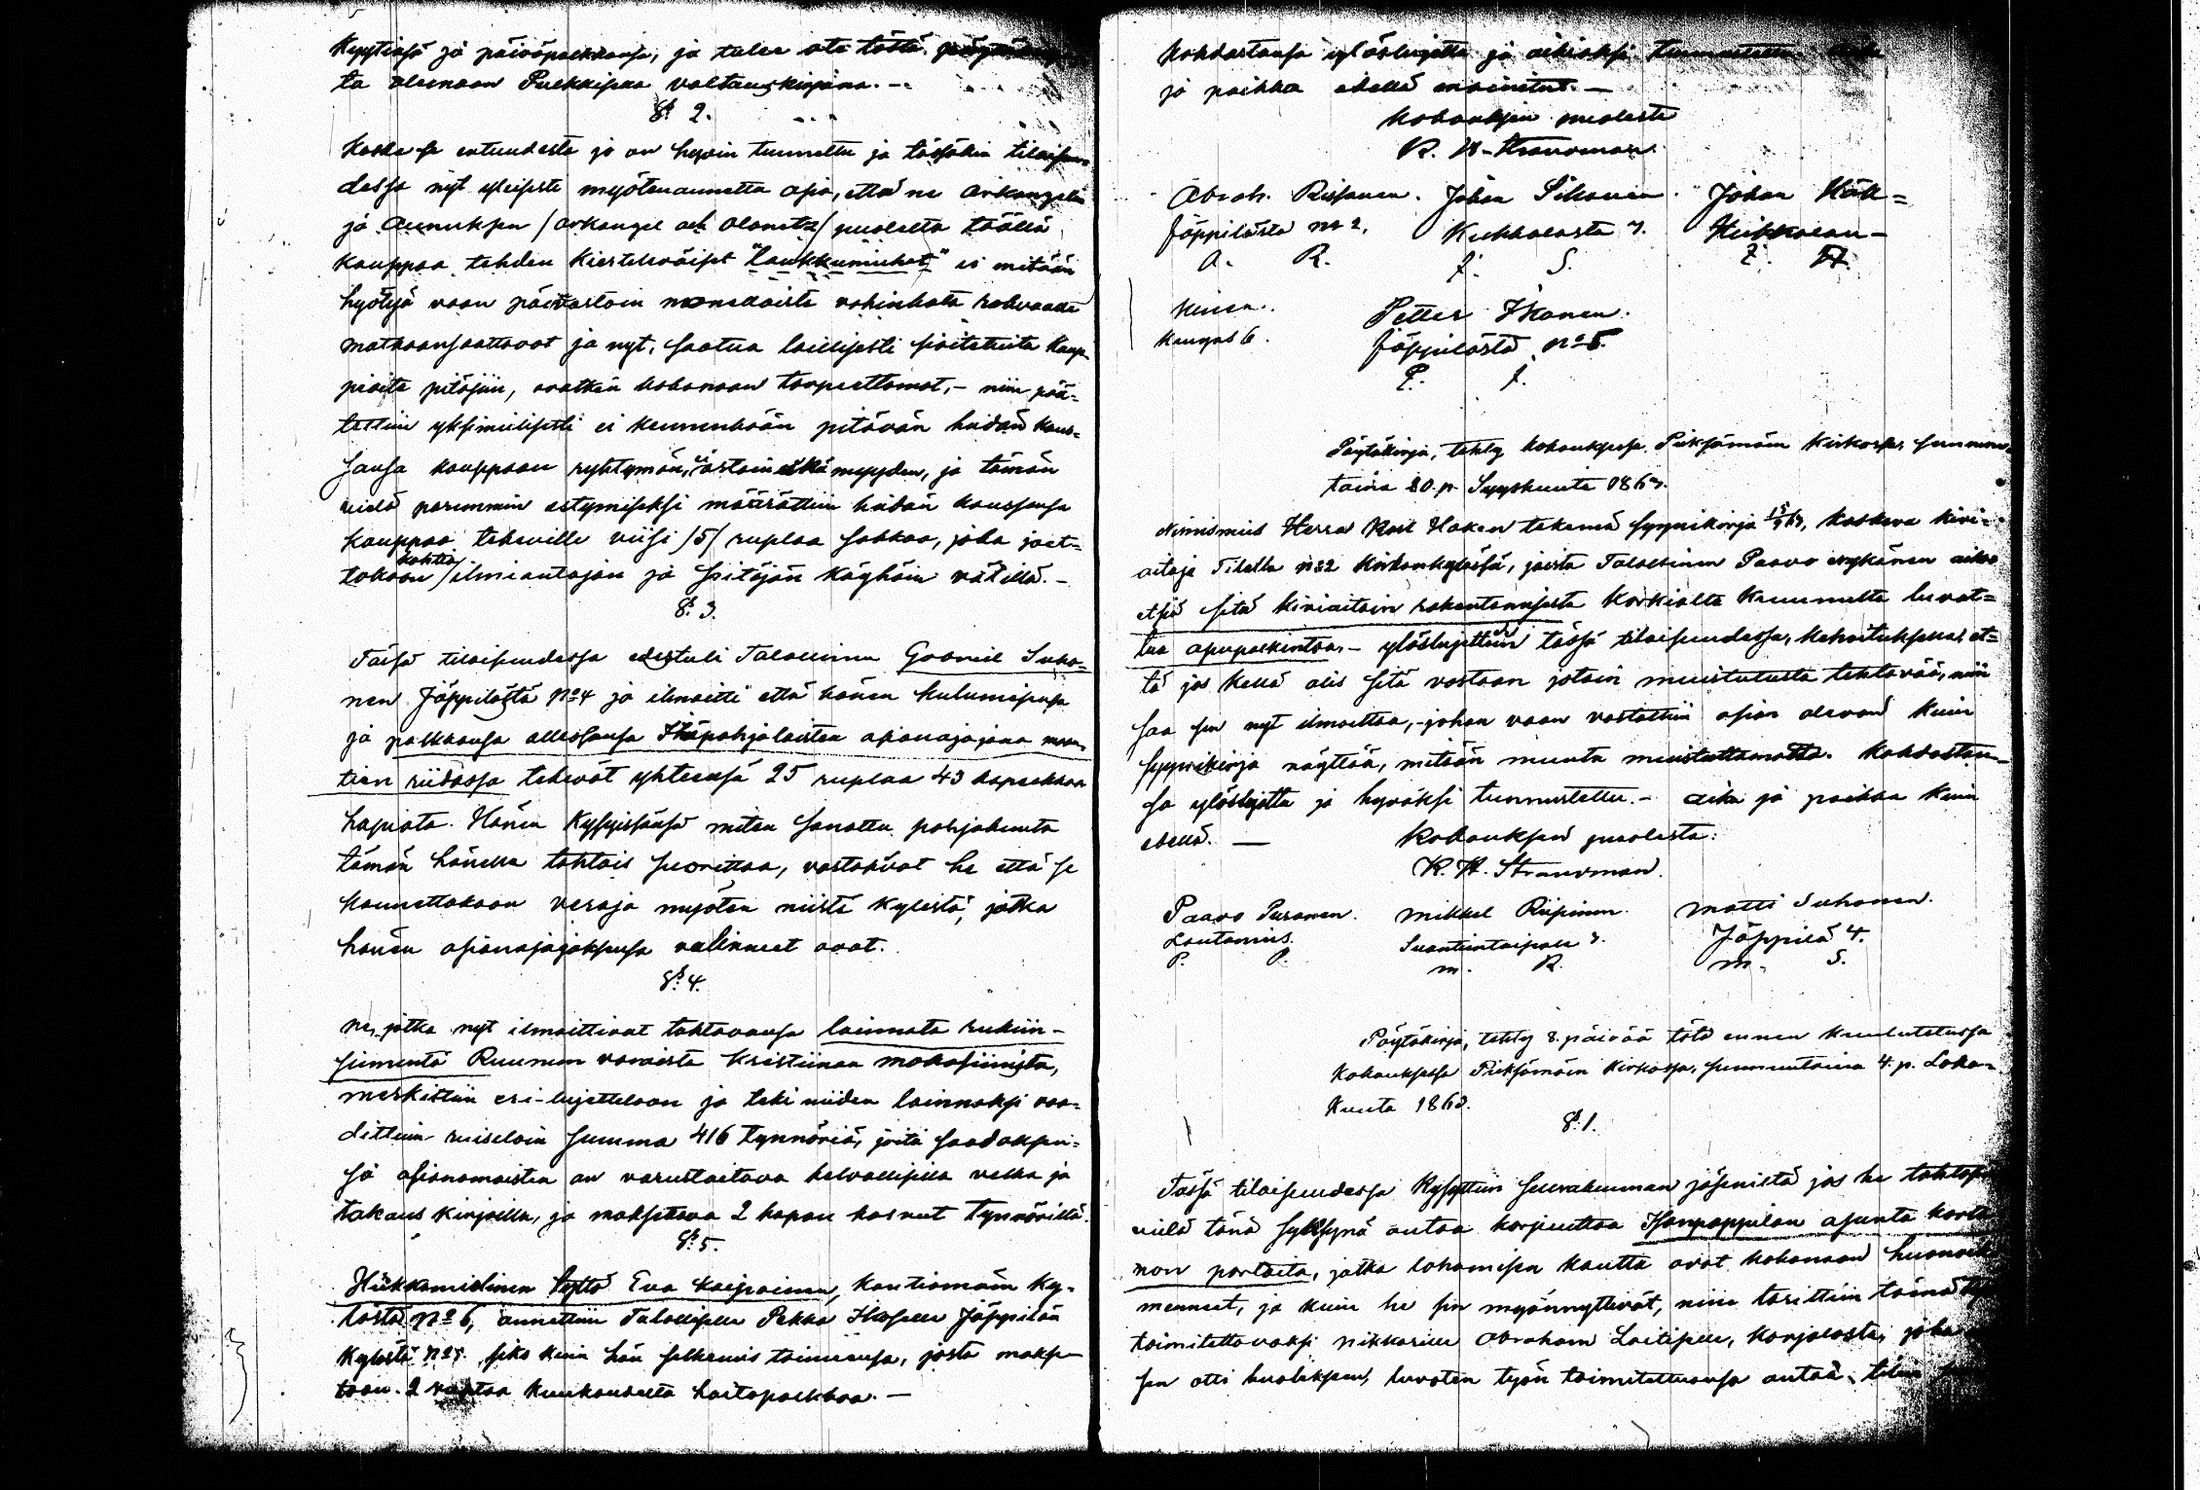 Kyytinsä ja päiväpalkkansa, ja tulee ote tästä
ta olemaan Pulkkisen valtauskirjana. —
§ 2.
Koska se entuudesta jo on hyvin tunnettu ja tässäkin tilaisuu-
dessa nyt yleisesti myötenannettu asia, että ne Arkangelin
ja Aunuksen /Arkangel och Olonetz/ puolelta täällä
kauppaa tehden kiertelewäiset "laukkumiehet" ei mitään
hyötyä vaan päinvastoin monellaista vahinkota rahvaalle
matkaansaattavat ja nyt, saatua laillisesti säätetuita kaup-
piaita pitäjiin, ovatkin kokonaan tarpeettomat, – niin pää-
tettiin yksimielisesti ei kenenkään pitävän heidän kans-
sansa kauppaan ryhtymän, ei ostain eikä myyden, ja tämän
vielä paremmin estymiseksi määrättiin heidän kanssansa
kauppaa tekeville viisi /5/ ruplaa sakkoa, joka jaet-
takoon kahtia /ilmiantajan ja pitäjän käyhäin välillä. –
§ 3.
Tässä tilaisuudessa edestuli Talollinen Gabriel Suho-
nen Jäppilästä No 4 ja ilmoitti että hänen kulumisensa
ja palkkansa ollessansa Itäpohjalaisten asianajajana maan-
tien riidassa tekevät yhteensä 25 ruplaa 43 kopeekkaa
hopiata. Hänen kysyissänsä miten sanottu pohjakunta
tämän hänelle tahtois suorittaa, vastasivat he että se
kannettakoon veroja myöten niistä kylistä, jotka
hänen asianajajaksensa valinneet ovat.
§ 4.
Ne, jotka nyt ilmoittivat tahtovansa lainnata rukiin-
siementä Ruunun varoista Kristiinan makasiinista,
merkittiin eri-lujetteloon ja teki niiden lainnaksi vaa-
dittuin ruiseloin summa 416 Tynnöriä, joita saadaksen-
sa asianomaisten on varustaitava kelvollisilla velka ja
takaus kirjoilla, ja maksettava 2 kapan kasvut Tynnöriltä.
§ 5.
Heikkomielinen tyttö Eva Kaipainen, Kantiomäin ky-
lästä No 6, annettiin Talolliselle Pekka Ikoselle Jäppilän
Kylästä No 5. siksi kuin hän selkenis toimeensa, josta makse-
taan 2 ruplaa kuukaudelta hoitopalkkaa. —
Kohdastansa ylöslujettu ja oikiaksi tunnustettu. Aika
ja paikka edellä mainitut. —
Kokouksen puolesta
K. H. Strandman
Abrah. Riisanen. Johan Sikanen. Johan Häk-
Jäppilästä No 2. Kukkolasta 7. Heikkolan-
A. R. J. S. J. H.
kinen.
kangas 6.
Petter Ikonen.
Jäppilästä No 5.
P. I.
Pöytäkirja, tehty kokouksessa Pieksämäin Kirkossa, sunnun-
taina 20. p. Syyskuuta 1863.
Nimismies Herra Karl Hoken tekemä syynikirja 15/9 63, koskeva kivi-
aitoja Tilalla No 2 Kirkonkylässä, joista Talollinen Paavo Nykänen aikoo
etsiä sitä kiviaitain rakentamisesta Korkialta Kruunulta luvat-
tua apupalkintoa, – ylöslujettiin tässä tilaisuudessa, kehoituksella, et-
tä jos kellä olis sitä vastaan jotain muistutusta tehtävää, niin
saa sen nyt ilmoittaa, – johon vaan vastattiin asian olevan kuin
syynikirja näyttää, mitään muuta muistuttamatta. Kohdastan-
sa ylöslujettu ja hyväksi tunnustettu. – Aika ja paikka kuin
edellä. —
Kokouksen puolesta:
K. H. Strandman.
Paavo Puranen. Mikkel Riipinen. Matti Suhonen.
Lautamies. Suontientaipale 3. Jäppilä 4.
P. P. M. R. M. S.
Pöytäkirja, tehty 8. päivää tätä ennen kuulutetussa
Kokouksessa Pieksämäin Kirkossa, sunnuntaina 4. p. Loka-
kuuta 1863.
§ 1.
Tässä tilaisuudessa kysyttiin seurakunnan jäsenistä jos he tahtosi
vielä tänä syksynä antaa korjuuttaa Isonpappilan asunto karta-
non portaita, jotka lahomisen kautta ovat kokonaan huonoiksi
menneet, ja kuin he sen myönnyttivät, niin tarittiin tämä työ
toimitettavaksi nikkarille Abraham Laitiselle, Karjalasta, joka
sen otti huoleksensa, luvaten työn toimitettuansa antaa tilin